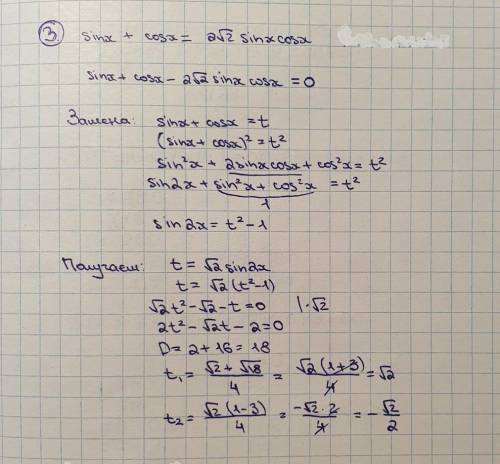 3. sinx + cosx = 2√2 sinxcosx
sinx + cosx - 2√2 sinx cosx = 0
Замена: sinx + cosx = t
(sinx + cosx)² = t²
sin²x + 2sinxcosx + cos²x = t²
sin2x + sin²x + cos²x = t²
1
sin2x = t² - 1
Получаем: t = √2 sin2x
t = √2 (t² - 1)
√2t² - √2 - t = 0 |·√2
2t² - √2t - 2 = 0
D = 2 + 16 = 18
t₁ = (√2 + √18)/4 = √2(1+3)/4 = √2
t₂ = √2(1-3)/4 = -√2·2/4 = -√2/2